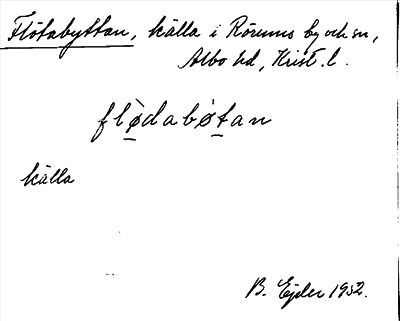 Flötabyttan, källa i Rörums by och sn,
Albo hd, Krist. l.
flø̀dabøtan
källa
B. Ejder 1952.